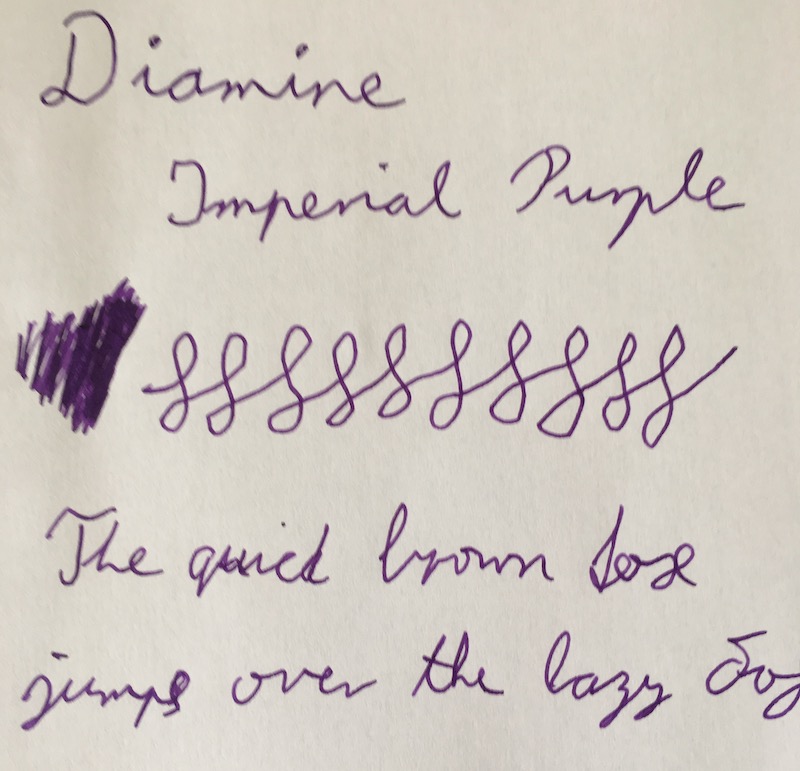 Diamine
Imperial Purple
The quick brown fox
jumps over the lazy dog